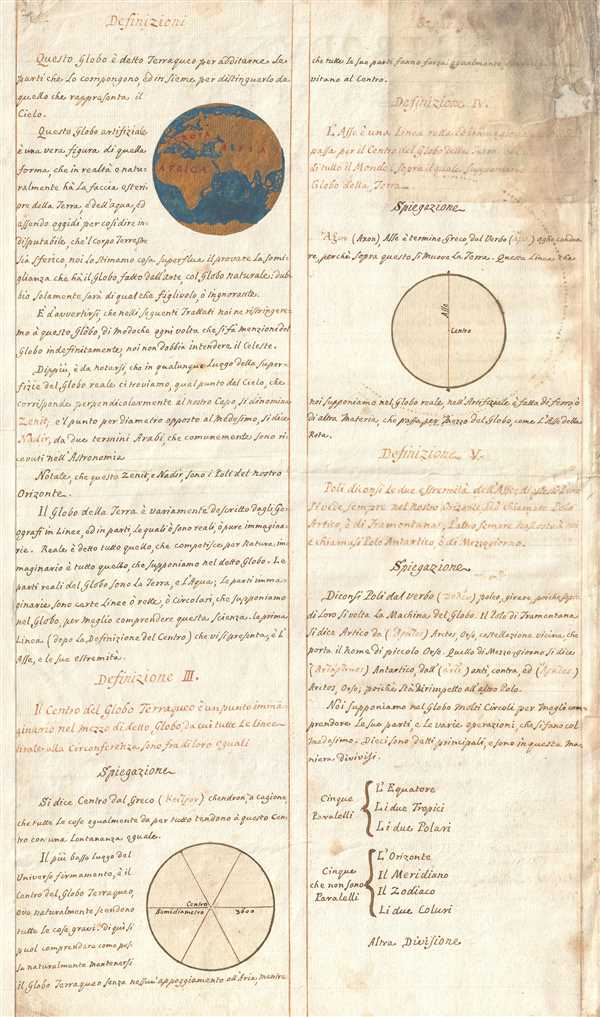 Definizioni
Questo Globo è detto Terraqueo per additarne le
parti che lo compongono, ed insieme per distinguerlo da
quello che rappresenta il
Cielo.
Questo Globo artifiziale
è una vera figura di quella
forma, che in realtà e natu-
ralmente hà la faccia esteri-
ore della Terra, e dell'aqua, ed
essendo oggidì per così dire in-
disputabile, che'l Corpo Terrestre
Sia Sferico, noi lo stimiamo cosa superflua il provare la somi-
glianza che hà il Globo fatto dall'Arte col Globo naturale; dub-
bio solamente sarà di qualche figlivolo, ò ingnorante.
E d'avvertirsi, che nelli seguenti Trattati noi ne ristringere-
mo à questo Globo, di modoche ogni volta che si fà menzione del
Globo indefinitamente, noi non dobbia intendere il Celeste.
Dippiù, è da notarsi, che in qualunque Luogo della super-
fizie del Globo reale ci troviamo, qual punto del Cielo, che
corrisponde perpendicolarmente al nostro Capo, si dinomina
Zenit; e'l punto per diametro opposto al medesimo, si dice
Nadir, da due termini Arabi, che comunemente sono ri-
cevuti nell'Astronomia
Notate, che questo Zenit, e Nadir, sono i Poli del nostro
Orizonte.
Il Globo della Terra è variamente descritto dagli Geo-
grafi in Linee, ed in parti, le quali ò sono reali, ò pure immagina-
rie. Reale è detto tutto quello, che competisce per Natura, im-
maginario è tutto quello, che supponiamo nel detto Globo. Le
parti reali del Globo sono la Terra, e l'Aqua; Le parti imma-
ginarie sono certe Linee ò rette, ò Circolari, che supponiamo
nel Globo, per meglio comprendere questa Scienza. la prima
Linea (dopo la Definizione del Centro) che vi si presenta, è L'
Asse, e le sue estremità.
Definizione III.
Il Centro del Globo Terraqueo è un punto immà
ginario nel mezzo di detto Globo, da cui tutte le Linee
tirate alla Circonferenza sono fra di loro eguali
Spiegazione
Si dice Centro dal Greco ( ) chendron, a cagione,
che tutte le cose egualmente da per tutto tendono à questo Cen-
tro con una Lontananza eguale.
Il più basso luogo del
Universo firmamento, è il
Centro del Globo Terraqueo,
ove naturalmente scendono
tutte le cose gravi: di quì si
puol comprendere come pos-
sa naturalmente mantenersi
il Globo Terraqueo senza nessun'appoggiamento all'Aria, mentre
AFRICA
Centro
Semidiametro
3600
che tutte le sue parti fanno forza egualmente
vitano al Centro.
Definizione IV.
L'Asse è una Linea retta
passa per il Centro del Globo della Terra
di tutto il Mondo, sopra il quale supponiamo
Globo della Terra
Spiegazione
(Axon) Asse è termino Greco dal Verbo
re, perchè sopra questo si Muove la Terra. Questa Linea che
Asse
Centro
noi supponiamo nel Globo reale, nell'Artifiziale è fatta di ferro, ò
di altra Materia, che passa per Mezzo del Globo, come L'Asse della
Rota.
Definizione V.
Poli diconsi le due estremità dell'Asse;
sempre nel nostro Orizonte Stà chiamato Polo
Artico, ò di Tramontana; L'altro sempre
e chiamasi Polo Antartico ò di Mezzogiorno.
Spiegazione
Diconsi Poli dal verbo ( ) poleo, girare, perche sopra
di Loro si volta la Machina del Globo. Il Polo di Tramontana
Si dice Artico da ( ) Arctos, Orsa, costellazione vicina, che
porta il nome di piccolo Orsa. Quello di Mezzogiorno si dice
( ) Antartico, dall' (ἀντί) anti, contra, ed ( )
Arctos, Orsa; poichè stà dirimpetto all'altro Polo.
Noi supponiamo nel Globo molti Circoli, per meglio com-
prendere le sue parti, e le varie operazioni, che si fano col
medesimo. Dieci sono detti principali, e sono in questa ma-
niera divivisi.
Cinque
Paralelli
L'Equatore
Li due Tropici
Li due Polari
Cinque
che non sono
Paralelli
L'Orizonte
Il Meridiano
Il Zodiaco
Li due Coluri
Altra Divisione